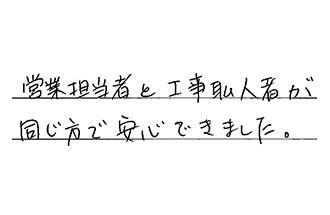 営業担当者と工事私人者が
同じ方で安心できました。